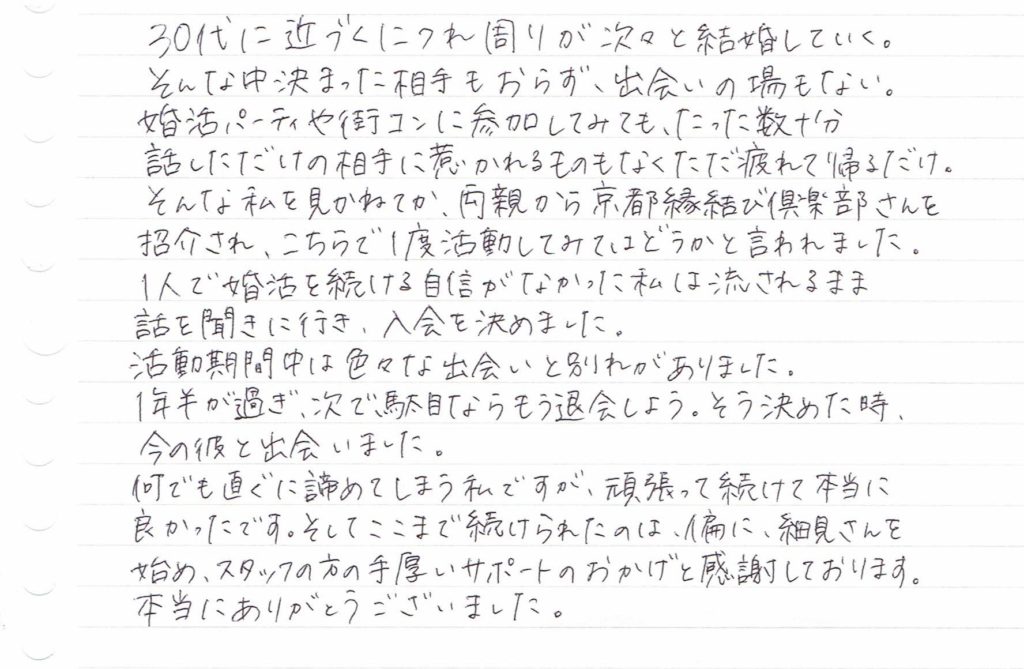 30代に近づくにつれ周りが次々と結婚していく。
そんな中決まった相手もおらず、出会いの場もない。
婚活パーティや街コンに参加してみても、たった数十分
話しただけの相手に惹かれるものもなくただ疲れて帰るだけ。
そんな私を見かねてか、両親から京都縁結び倶楽部さんを
招介され、こちらで1度活動してみてはどうかと言われました。
1人で婚活を続ける自信がなかった私は流されるまま
話を聞きに行き、入会を決めました。
活動期間中は色々な出会いと別れがありました。
1年半が過ぎ、次で駄目ならもう退会しよう。そう決めた時、
今の彼と出会いました。
何でも直ぐに諦めてしまう私ですが、頑張って続けて本当に
良かったです。そしてここまで続けられたのは、偏に、細見さんを
始め、スタッフの方の手厚いサポートのおかげと感謝しております。
本当にありがとうございました。